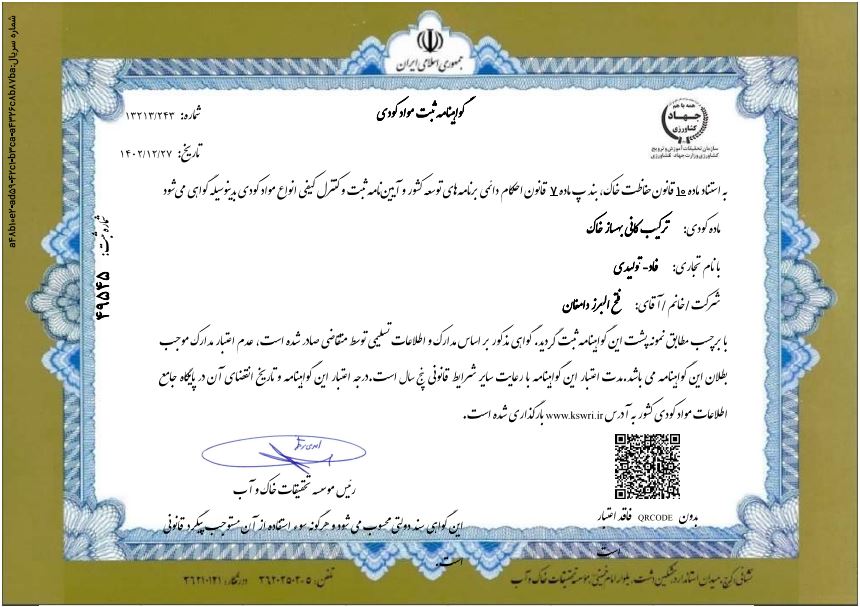 جمهوری اسلامی ایران
همه با هم
جهاد
کشاورزی
سازمان تحقیقات، آموزش و ترویج
کشاورزی وزارت جهاد کشاورزی
گواهینامه ثبت مواد کودی
شماره: ۱۳۲۱۳/۲۴۳
تاریخ: ۱۴۰۲/۱۲/۲۷
به استناد ماده ۱۰ قانون حفاظت خاک، بند پ ماده ۷ قانون احکام دائمی برنامه های توسعه کشور و آیین نامه ثبت و کنترل کیفی انواع مواد کودی بدینوسیله گواهی می شود
ماده کودی: ترکیب کانی بهساز خاک
با نام تجاری: فاد- تولیدی
شرکت / خانم / آقای: فتح البرز دامغان
با برچسب مطابق نمونه پشت این گواهینامه ثبت گردید. گواهی مذکور بر اساس مدارک و اطلاعات تسلیمی توسط متقاضی صادر شده است، عدم اعتبار مدارک موجب
بطلان این گواهینامه می باشد.مدت اعتبار این گواهینامه با رعایت سایر شرایط قانونی پنج سال است.درجه اعتبار این گواهینامه و تاریخ انقضای آن در پایگاه جامع
اطلاعات مواد کودی کشور به آدرس www.kswri.ir بارگذاری شده است.
رئیس موسسه تحقیقات خاک و آب
بدون QRCODE فاقد اعتبار
است
این گواهی سند دولتی محسوب می شود و هرگونه سوء استفاده از آن مستوجب پیگرد قانونی
است.
نشانی: کرج، میدان استاندارد، مشکین دشت، بلوار امام خمینی، مؤسسه تحقیقات خاک و آب
تلفن: ۳۶۲۰۲۵۰۲۰۵ دورنگار: ۳۶۲۱۰۱۲۱
شماره ثبت: ۴۹۵۴۵
شماره سریال: